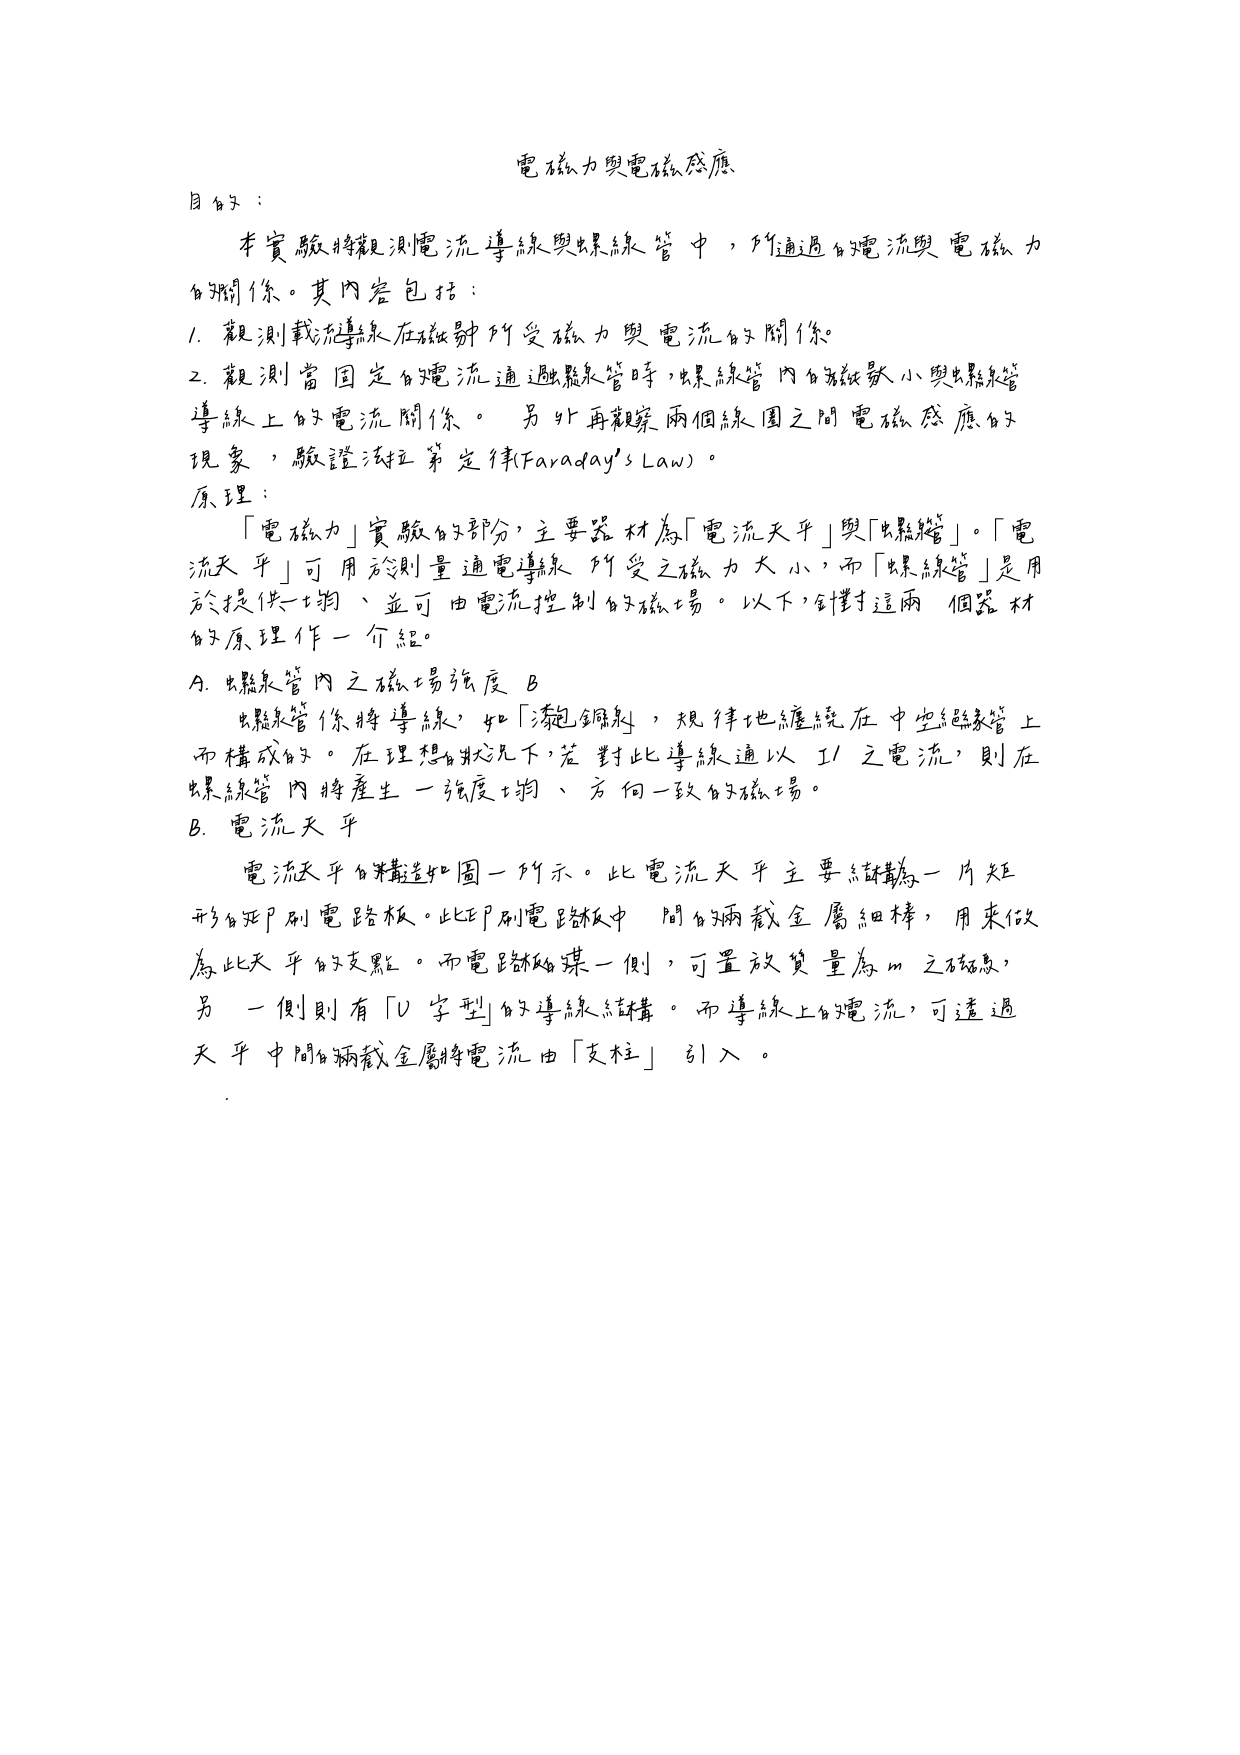 電磁力與電磁感應
目的：
本實驗將觀測電流導線與螺線管中，所通過的電流與電磁力
的關係。其內容包括：
1. 觀測載流導線在磁場中所受磁力與電流的關係。
2. 觀測當固定的電流通過螺線管時，螺線管內的磁場大小與螺線管
導線上的電流關係。 另外再觀察兩個線圈之間電磁感應的
現象，驗證法拉第定律(Faraday's Law)。
原理：
「電磁力」實驗的部分，主要器材為「電流天平」與「螺線管」。「電
流天平」可用於測量通電導線所受之磁力大小，而「螺線管」是用
於提供一均勻、並可由電流控制的磁場。以下，針對這兩個器材
的原理作一介紹。
A. 螺線管內之磁場強度 B
螺線管係將導線，如「漆包銅線」，規律地纏繞在中空絕緣管上
而構成的。在理想的狀況下，若對此導線通以 I1 之電流，則在
螺線管內將產生一強度均勻、方向一致的磁場。
B. 電流天平
電流天平的構造如圖一所示。此電流天平主要結構為一片矩
形的印刷電路板。此印刷電路板中間的兩截金屬細棒，用來做
為此天平的支點。而電路板的某一側，可置放質量為 m 之砝碼，
另一側則有「U 字型」的導線結構。而導線上的電流，可透過
天平中間的兩截金屬將電流由「支柱」引入。